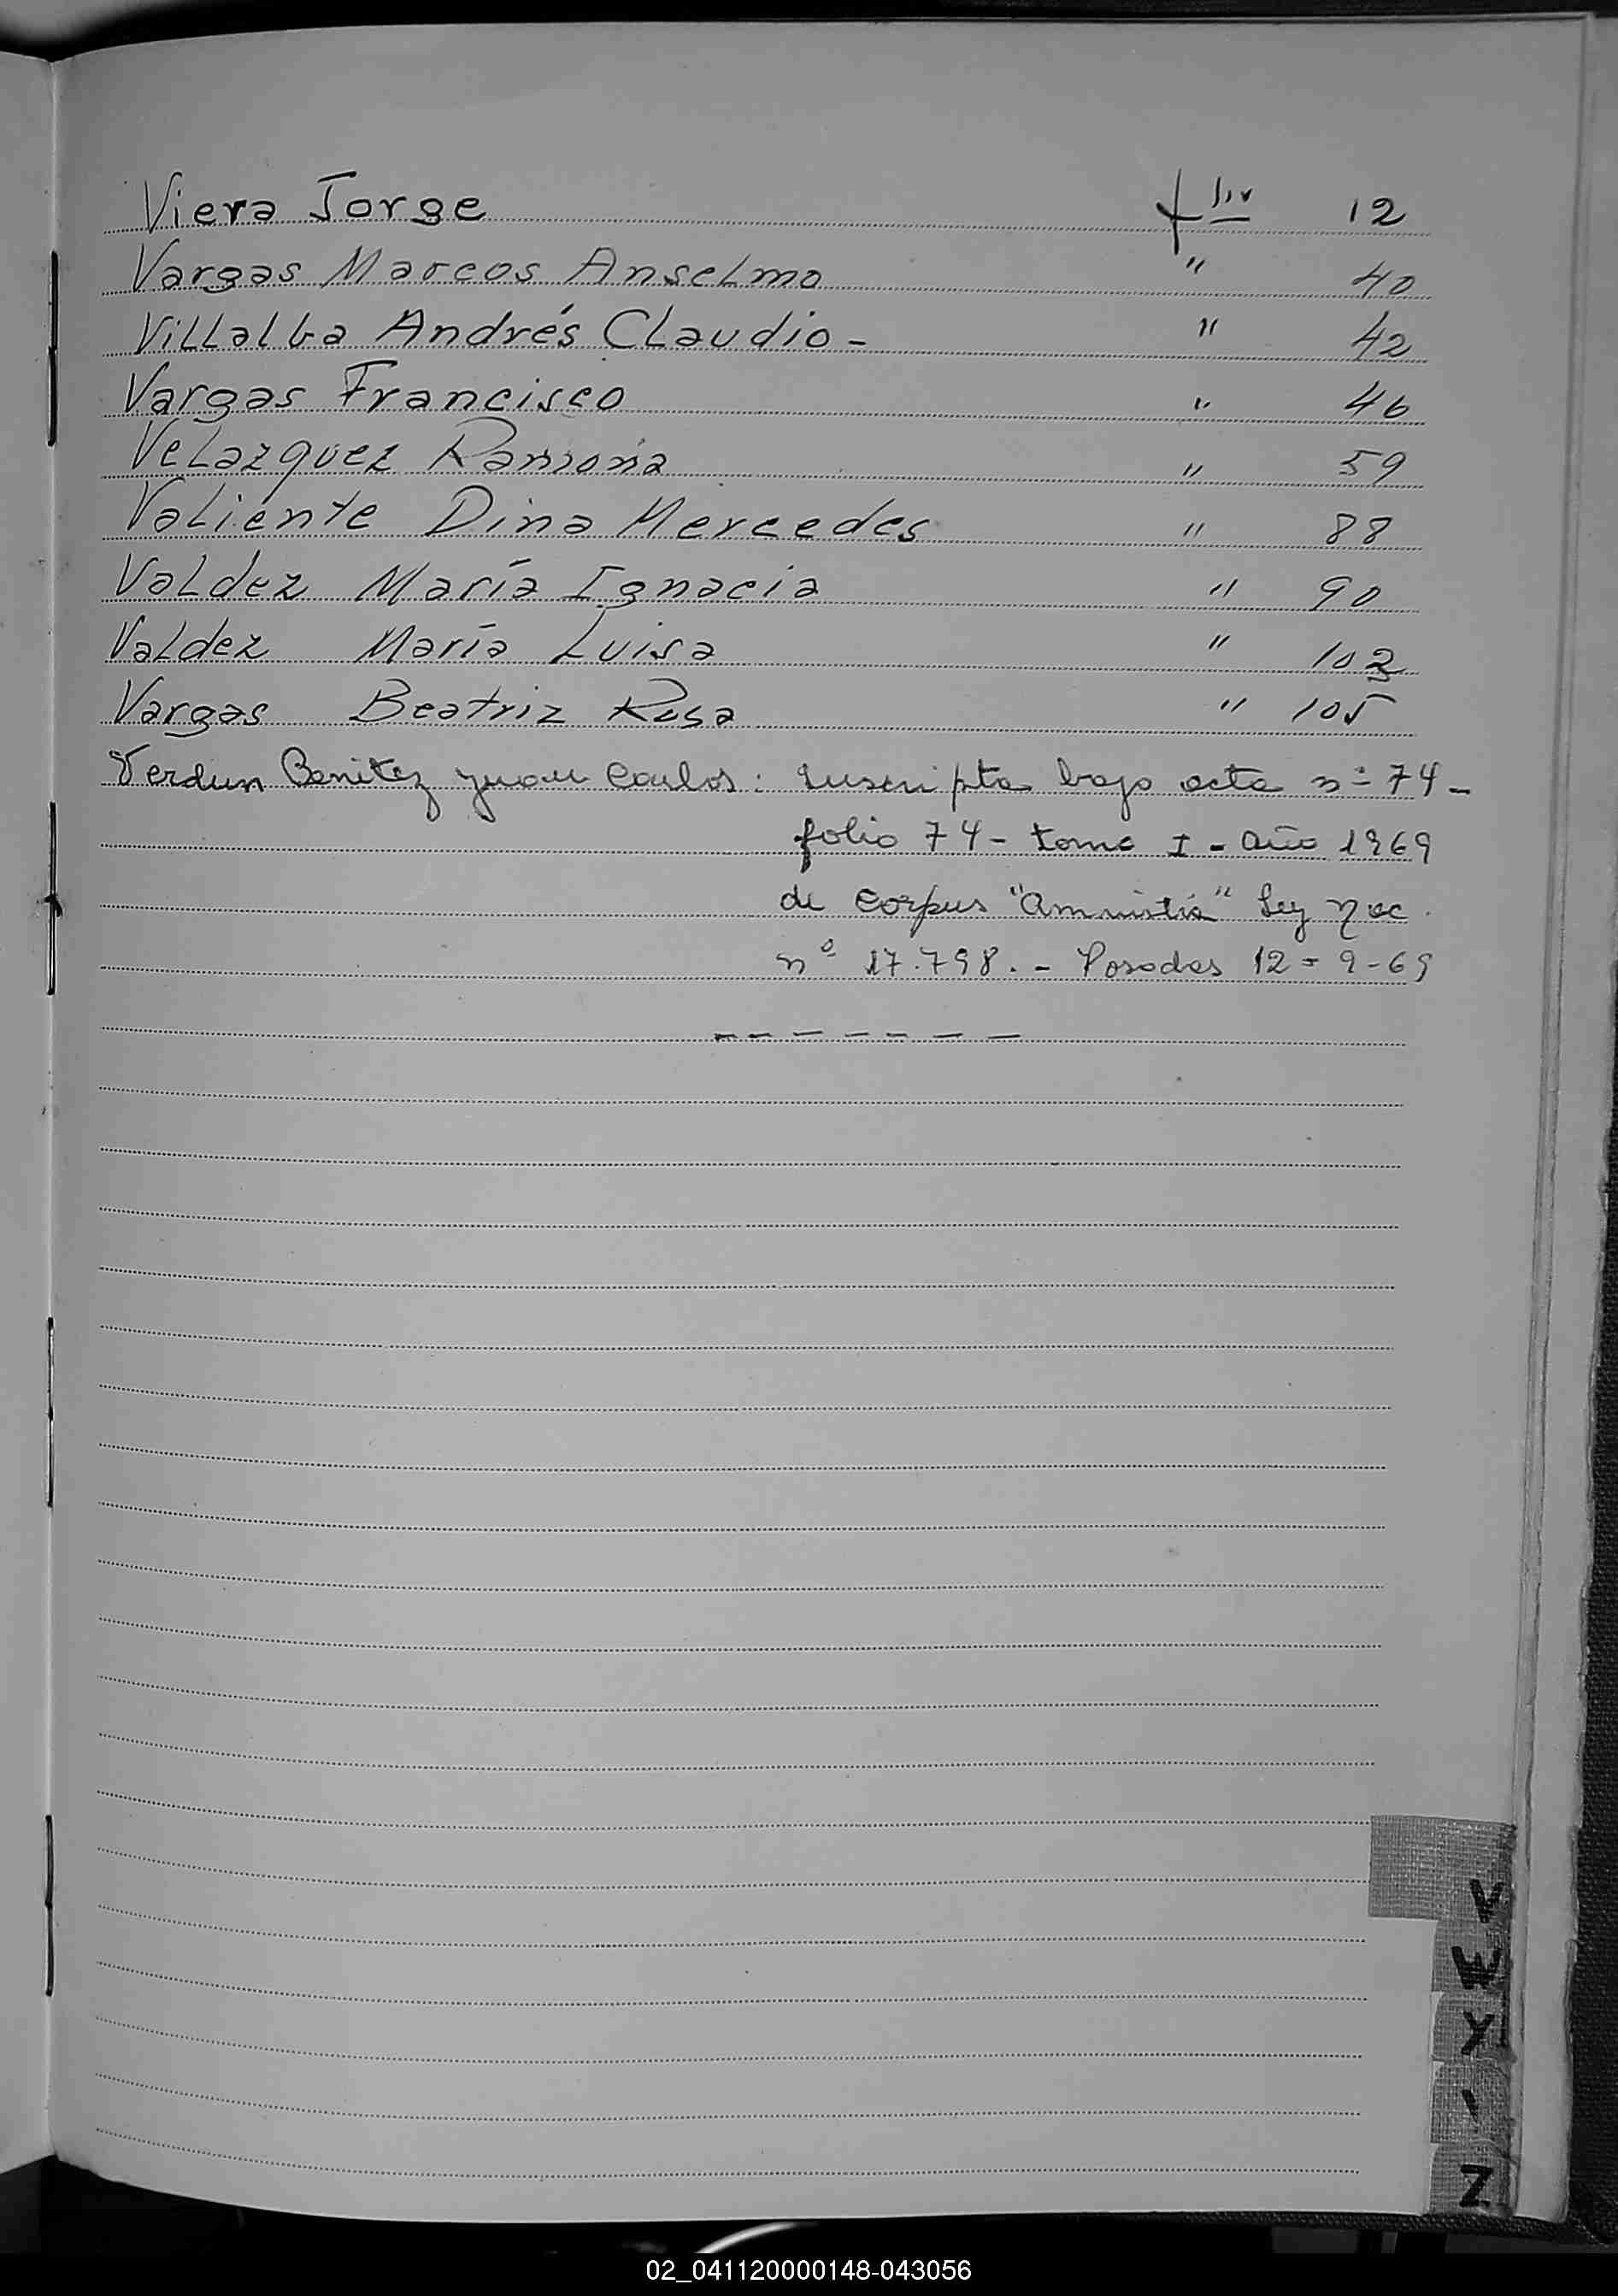 Viera Jorge 12
Vargas Marcos Anselmo " 40
Villalba Andrés Claudio - " 42
Vargas Francisco " 46
Velazquez Ramona " 59
Valiente Dina Mercedes " 88
Valdez María Ignacia " 90
Valdez María Luisa " 102
Vargas Beatriz Rosa " 105
Verdun Benitez Juan Carlos: Inscripta bajo acta nº 74 -
folio 74 - tomo I - año 1969
de Corpus "Amnistia" Ley nac.
nº 17.798. - Posadas 12 - 9 - 69
V
W
X
Z
02_041120000148-043056